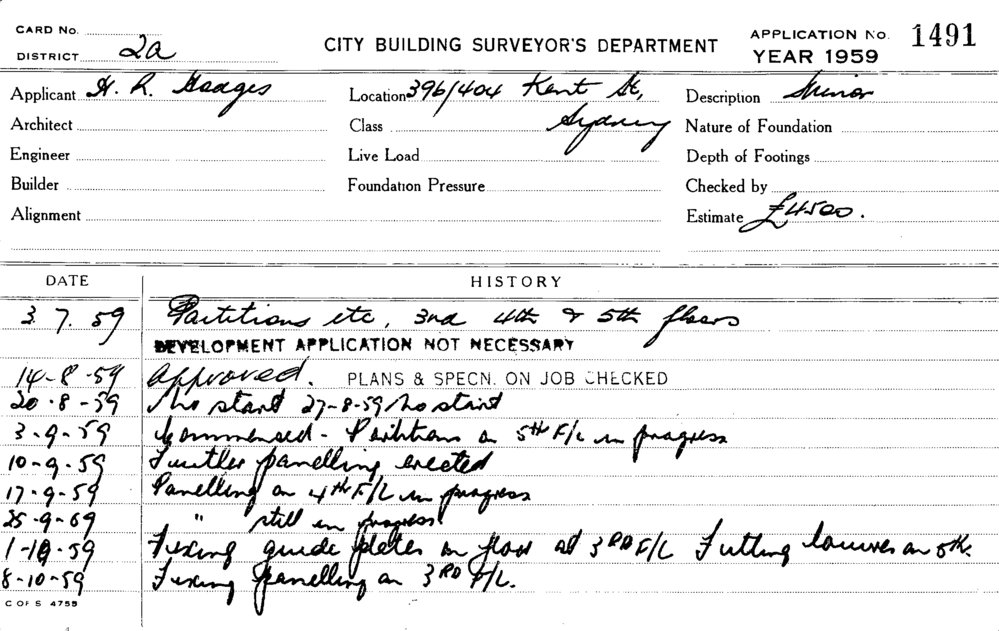 CARD No.
DISTRICT 2a
CITY BUILDING SURVEYOR'S DEPARTMENT
APPLICATION No. 1491
YEAR 1959
Applicant H. R. Hodges
Location 396/404 Kent St,
Sydney
Description Minor
Architect
Class
Nature of Foundation
Engineer
Live Load
Depth of Footings
Builder
Foundation Pressure
Checked by
Alignment
Estimate £4500.
DATE HISTORY
3. 7. 59 Partitions etc, 3rd 4th & 5th floors
DEVELOPMENT APPLICATION NOT NECESSARY
14-8-59 Approved. PLANS & SPECN. ON JOB CHECKED
20-8-59 No start 27-8-59 No start
3-9-59 Commenced - Partitions on 5th F/L in progress
10-9-59 Further panelling erected
17-9-59 Panelling on 4th F/L in progress
25-9-59 " still in progress
1-10-59 Fixing guide plates on floor at 3RD F/L Fitting louvres on 5th.
8-10-59 Fixing panelling on 3RD F/L.
C OF S 4759